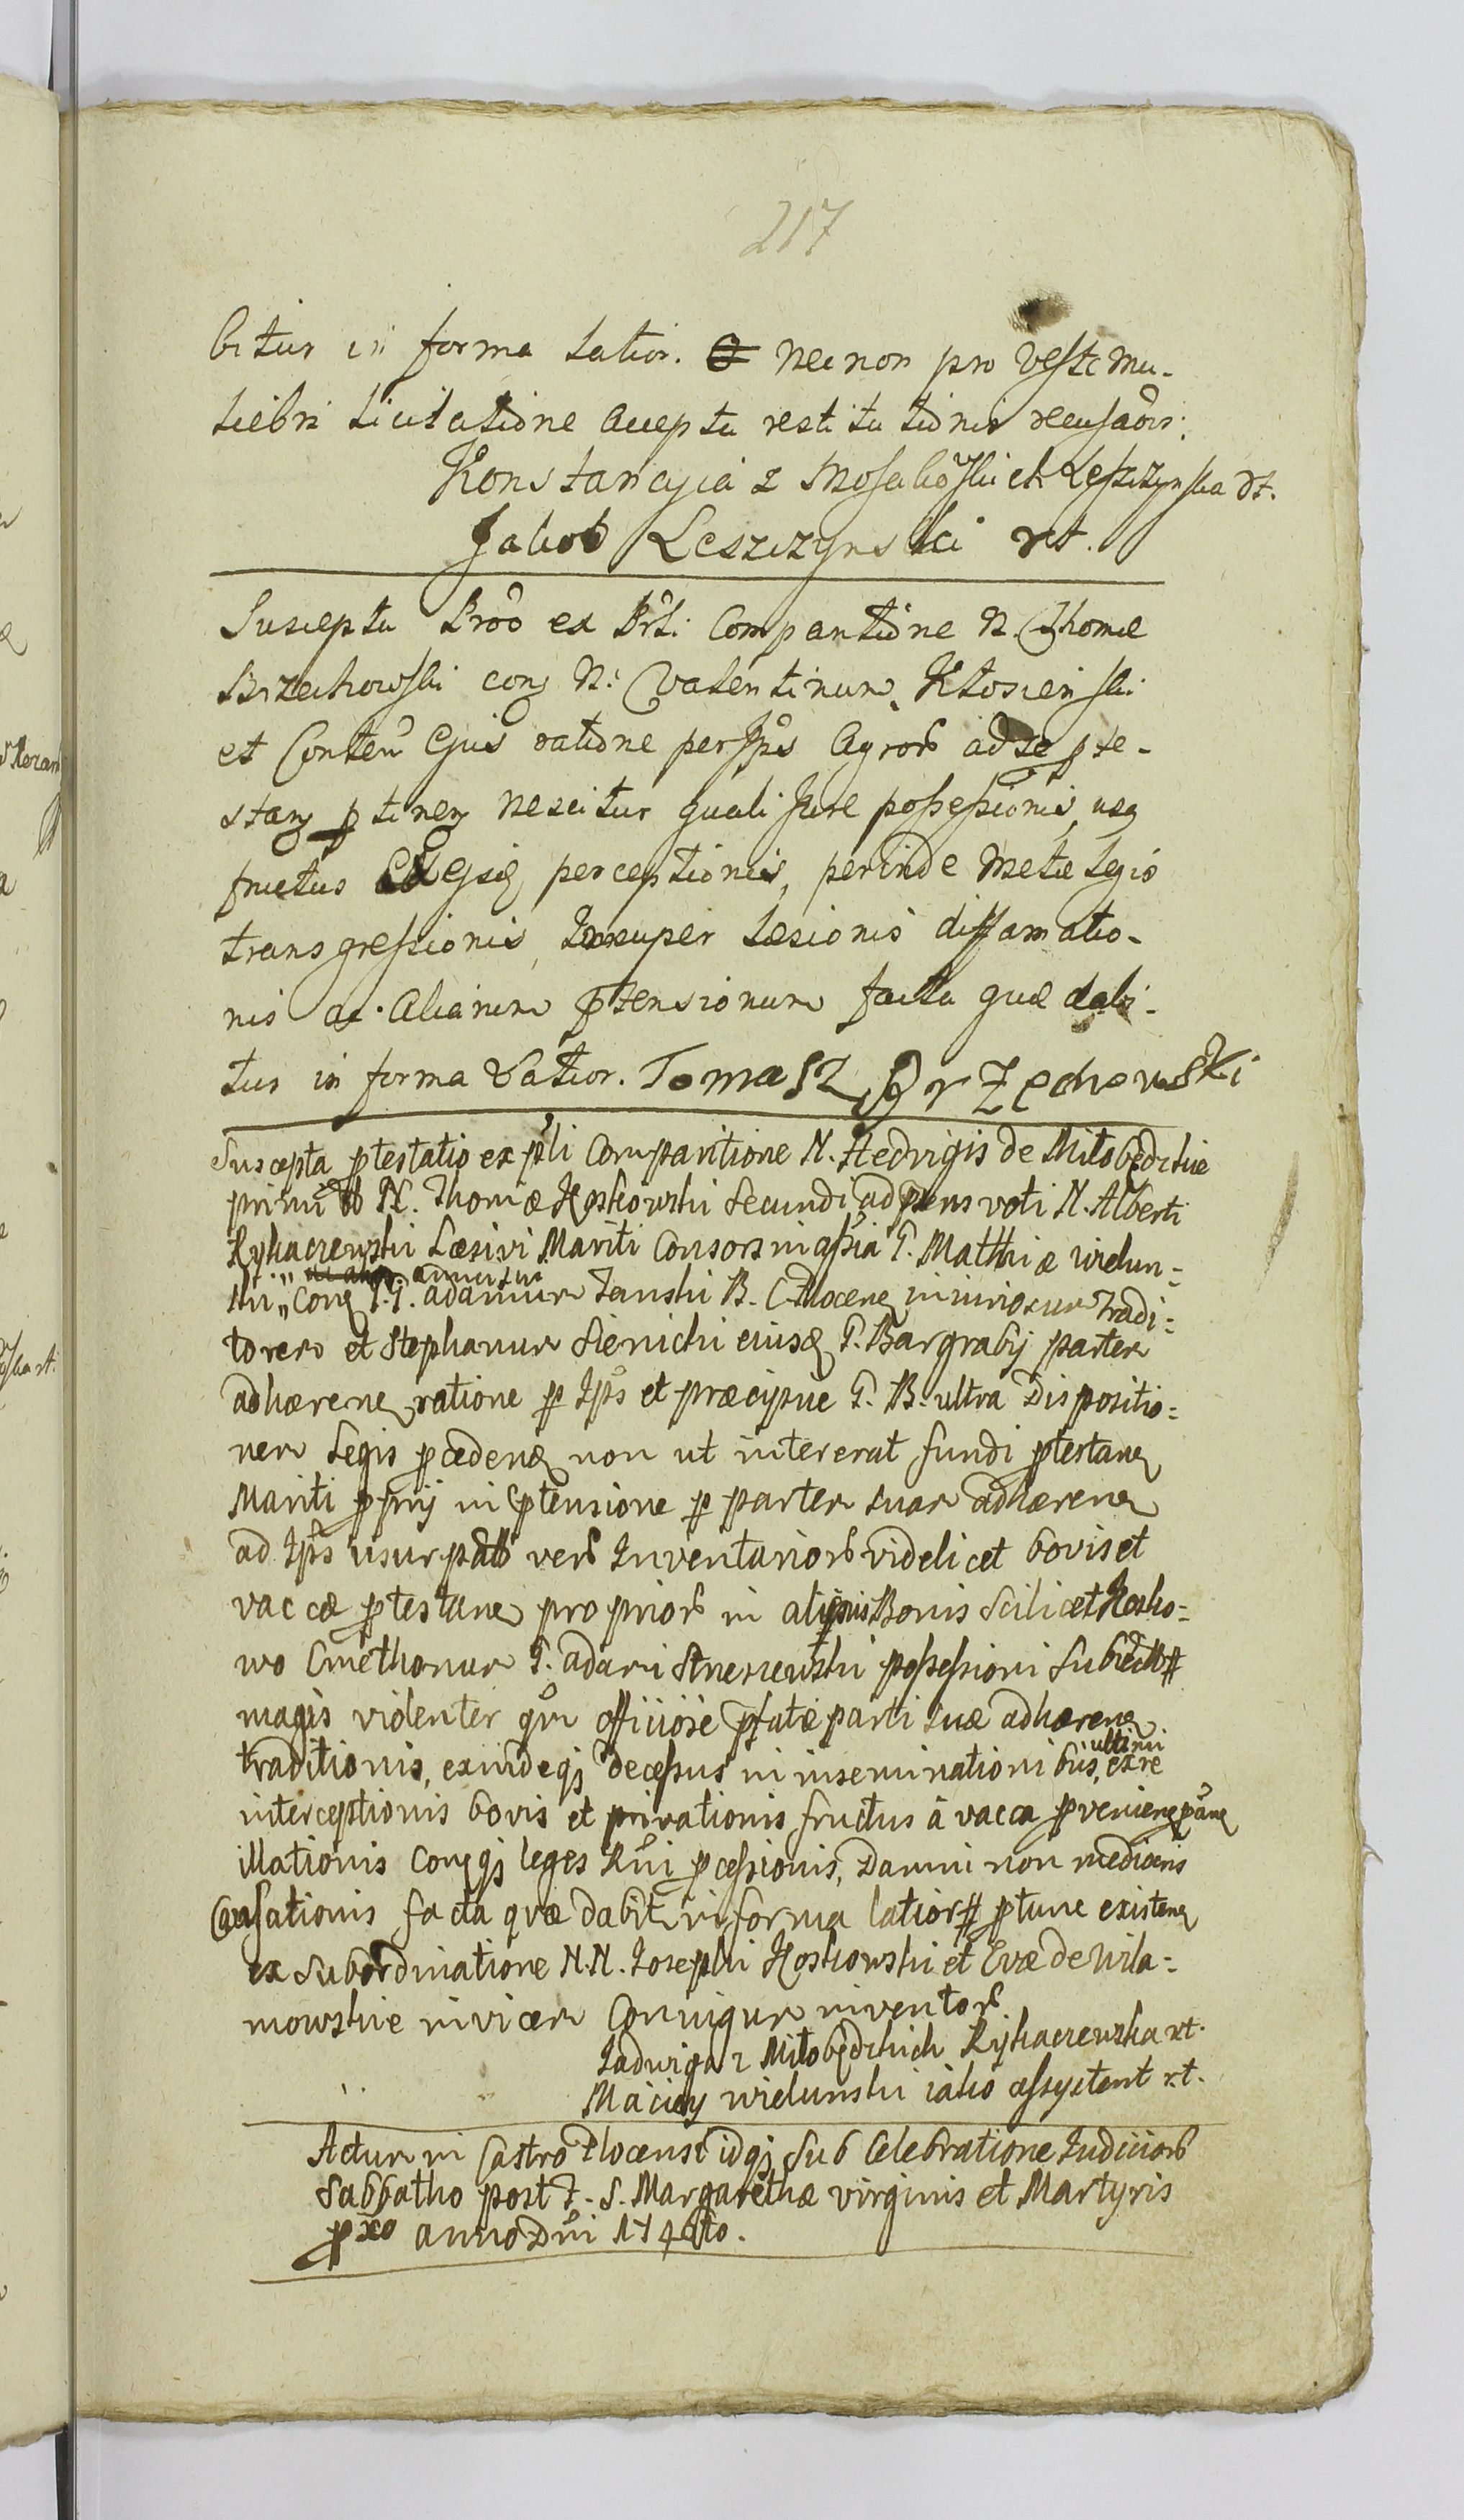 217
bitur in forma latior. nec non pro veste mu-
liebri licitatione accepta restitutionis recusaōis.
Konstancyia z Mosakoskich Leszczynska rt.
Jakob Leszczynski rt.
Suscepta Prōō ex Prsti Comparitione N. Thomæ
Brzechowski conq N. Valentinum Kłosienski
et Conten Ejus ratione per Ips Agrorb ad se pte-
stanq ptinenq nescitur quali Jure possessionis, usq
fructus Ejusq perceptionis, perinde Metæ legio
transgressionis, Insuper læsionis diffamatio-
nis ac Aliarum ptensionum facta quæ dabi-
tur in forma Latior. Tomasz Brzechowski
Suscepta ptestatio ex psli Comparitione N. Hedvigis de Miłobędzkie
primi N. Thomæ Koskowski secundi ad præns voti N. Alberti
Rykaczewski Læsivi Mariti Consors in assia G. Matthiæ Wielun=
ski" Conq G.G. Adamum Janski B. C. Plocenq iniuriosum Tradi=
torem et Stephanum Sienicki eiusq G. Bargrabij partem
adhærenq ratione p Ips et præcipue G. B. ultra Dispositio=
nem Legis pcedenq non ut intererat fundi ptestanq
Mariti pprij in ptensione p partem suam adhærenq
ad Ips usurpatb verb Inventariorb videlicet bovis et
vaccæ ptestanq propriorb in Bonis Scilicet Kosko=
wo Cmethonum G. Adami possessioni Subiectb#
magis violenter qm officiose pfatæ parti suæ adhærenq
traditionis, exindeq decessus in inseminationibus, ultimi ex re
interceptionis bovis et privationis fructus à vacca pvenienq pænq
illationis Conqq leges Rni pcessionis, Damni non mediocris
Causationis facta quæ dabit in forma latior# ptunc existenq
ex Subordinatione N.N. Josephi Koskowski et Evæ de Wila=
mowskie invicem Coniugum inventorb
Jadwiga z Miłobędzkich Rykaczewska rt.
Maciey Wielunski iako assystent rt.
Actum in Castro Plocensi idq Sub Celebratione Judiciorb
Sabbatho post F. S. Margarethæ Virginis et Martyris
pxo anno Dni